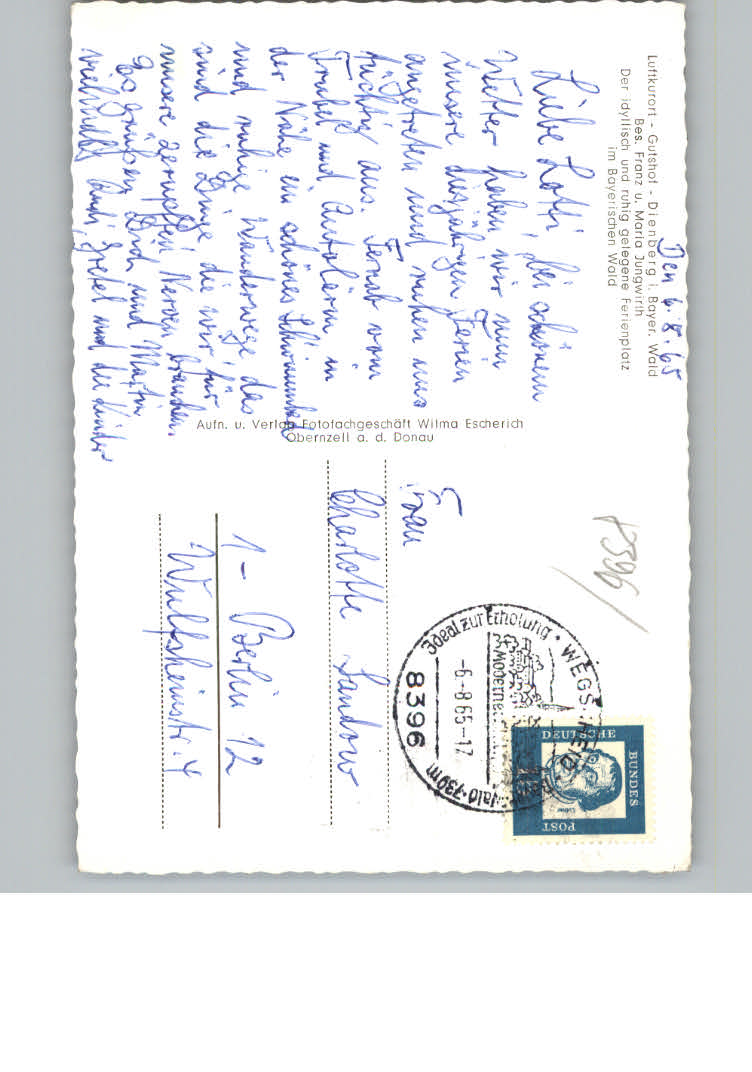 Luftkurort - Gutshof - Dienberg i. Bayer. Wald
Bes. Franz u. Maria Jungwirth
Der idyllisch und ruhig gelegene Ferienplatz
im Bayerischen Wald
Den 6.8.65
Liebe Lotti, bei schönem
Wetter haben wir nun
unsere diesjährigen Ferien
angetreten und ruhen uns
tüchtig aus. Fernab vom
Trubel und Autolärm in
der Nähe ein schönes Schwimmbad
und ruhige Wanderwege das
sind die Dinge die wir für
unsere zerrupften Nerven brauchen.
Es grüßen Dich und Martin
vielmals Gretel und die Kinder
Aufn. u. Verlag Fotofachgeschäft Wilma Escherich
Obernzell a. d. Donau
8396
Frau
Charlotte Sandow
1 - Berlin 12
Wulfsheinstr. 4
Ideal zur Erholung · WEGSCHEID
Moderne
-6.-8.65-17
8396
Wald · 730m
DEUTSCHE
BUNDES
POST
Luther